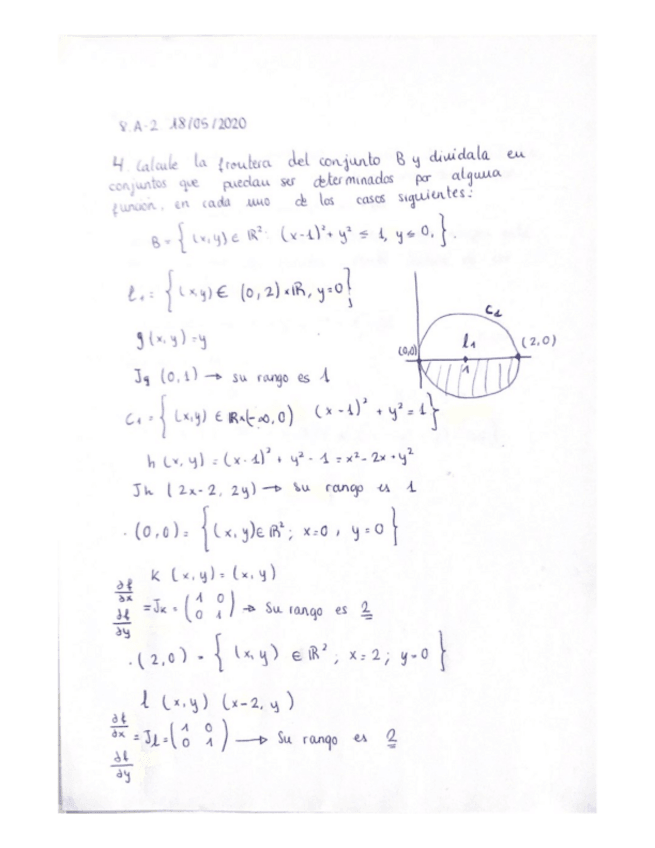 8.A-2 18/05/2020
4. Calcule la frontera del conjunto B y divídala en
conjuntos que puedan ser determinados por alguna
función, en cada uno de los casos siguientes:
B = { (x,y) ∈ ℝ²: (x-1)² + y² ≤ 1, y ≤ 0, }.
l₁ = { (x,y) ∈ (0,2) × ℝ, y=0 }
C₁
l₁
(0,0)
(2,0)
1
g(x,y) = y
Jg (0,1) → su rango es 1
C₁ = { (x,y) ∈ ℝ×(-∞,0) (x-1)² + y² = 1 }
h (x,y) = (x-1)² + y² - 1 = x² - 2x + y²
Jh (2x-2, 2y) → Su rango es 1
· (0,0) = { (x,y) ∈ ℝ²; x=0, y=0 }
K (x,y) = (x,y)
∂f/∂x ∂f/∂y = Jk = (1 0 / 0 1) → Su rango es 2
· (2,0) = { (x,y) ∈ ℝ²; x=2; y=0 }
l (x,y) (x-2, y)
∂f/∂x ∂f/∂y = Jl = (1 0 / 0 1) → Su rango es 2